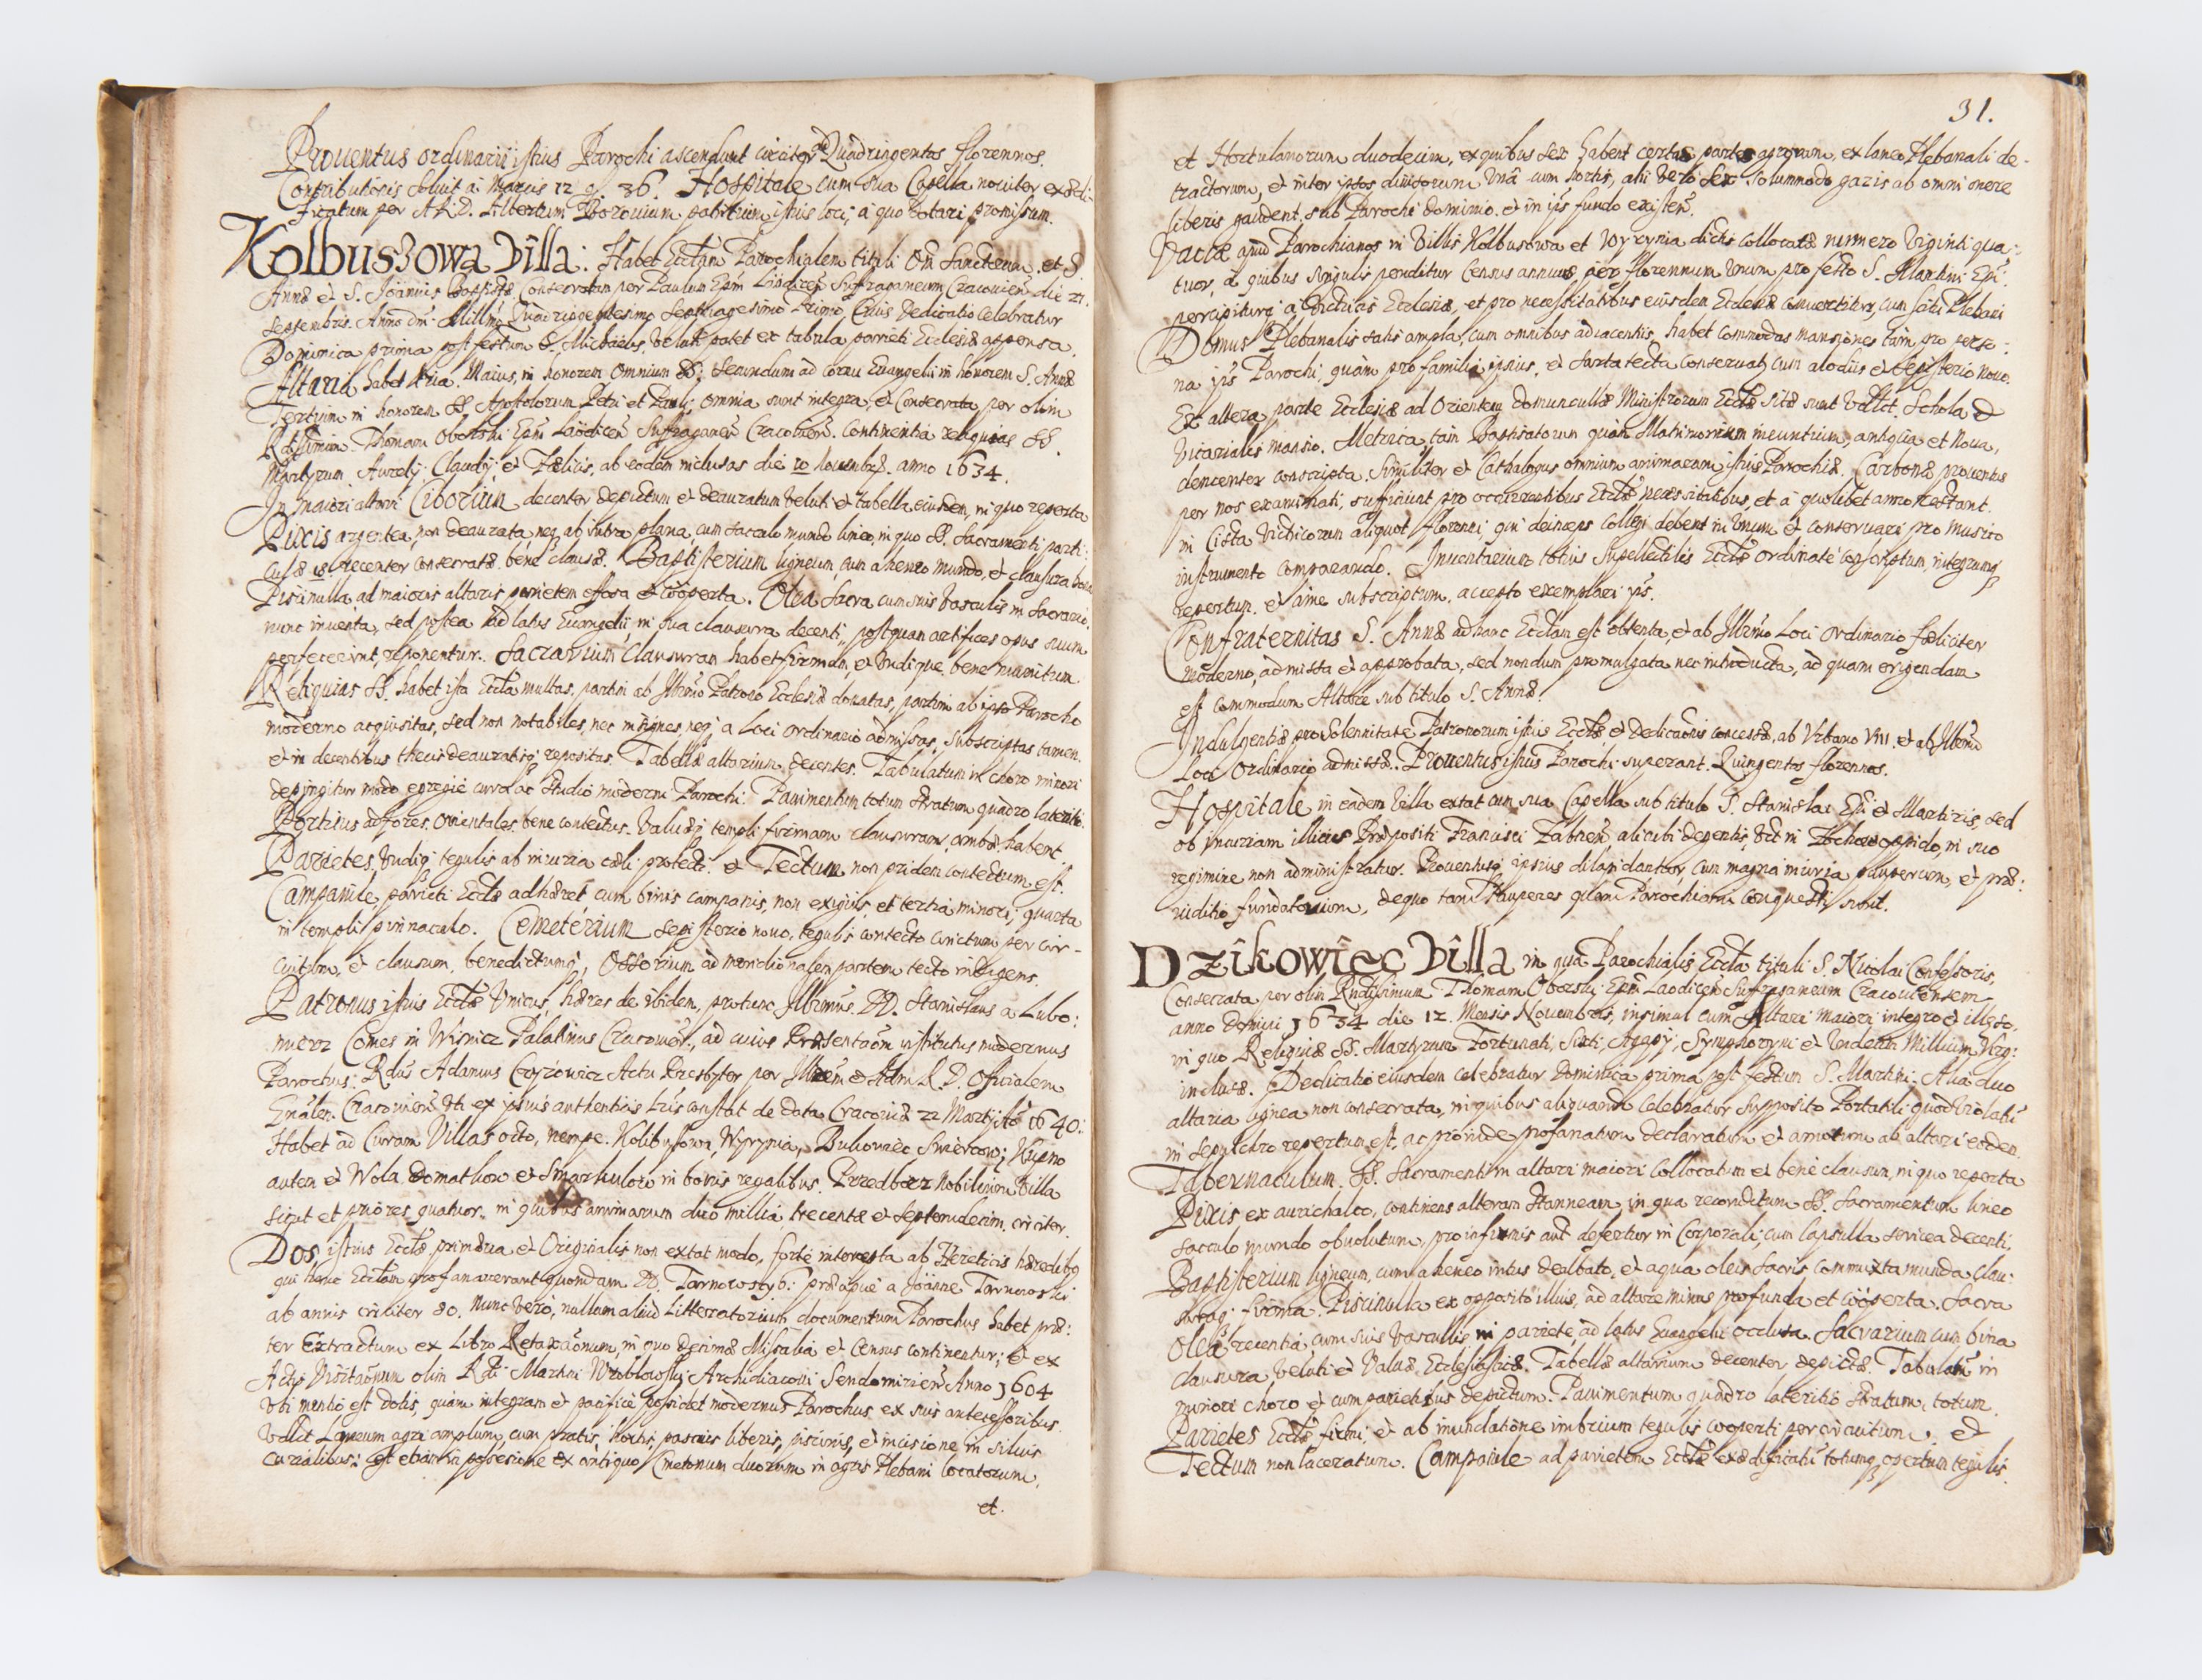 Prouentus ordinarii istius Parochi ascendunt circiter Quadringentos florennos.
Contributionis soluit a Marcis 12 g. 36. Hospitale cum sua Capella nouiter exaedi-
ficatum per A.R.D. Albertum Borouium patritium istius loci, a quo dotari promissum.
Kolbuszowa Villa: Habet Ecclam Parochialem tituli Om Sanctorum, et S
Annae et S. Joannis Baptistae, Consecratam per Paulum Epm Laodicen Suffraganeum Cracouien die 21.
Septembris. Anno Dni Millmo Quadringentesimo Septuagesimo Primo, Cuius Dedicatio Celebratur
Dominica prima post festum S. Michaelis. Veluti patet ex tabula parieti Ecclesiae appensa.
Altaria habet tria. Maius, in honorem Omnium SS; Secundum ad Cornu Euangelii in honorem S. Annae
Tertium in honorem SS Apostolorum Petri et Pauli; omnia sunt integra, et Consecrata per olim
Rdssimum Thomam Oborski Epm Laodicen Suffraganeu Cracouien. Continentia reliquias SS.
Martyrum Aurelij, Claudij, et Faelicis, ab eodem inclusas die 10 Nouembrs. anno 1634.
In maiori altari Ciborium decenter depictum et deauratum Veluti et tabella eiusdem, in quo reperta
Pixis argentea, non deaurata, neq ab intra plana, cum sacculo mundo lineo, in quo SS. Sacramenti parti:
culae 12 recenter consecratae bene clausae. Baptisterium ligneum, cum aheneo mundo, et clausura bona
Piscinulla ad maioris altaris parietem effosa et cooperta. Olea Sacra cum suis Vasculis in Sacrario
nunc inuenta, sed postea ad latus Euangelij, in sua clausurra decenti, postquam artifices opus suum
perfecerint, reponentur. Sacrarium Clausurram habet firmam, et Vndique bene munitum.
Reliquias SS. habet ista Eccla multas, partim ab Illmo Patrono Ecclesiae donatas, partim ab ipso Parocho
moderno acquisitas, sed non notabiles, nec insignes, neq a Loci Ordinario admissas, Subscriptas tamen.
et in decentibus thecis deauratisq repositas. Tabellae altarium decentes. Tabulatum in choro minori
depingitur modo egregie cura ac studio moderni Parochi. Pauimentum totum stratum quadro lateritio.
Porticus ad fores Orientales bene contectus. Valuae templi firmam clausurram ambae habent.
Parietes, Vndiq tegulis ab iniuria caeli protecti. et Tectum non pridem contectum est.
Campanile parieti Ecclae adhaeret cum binis campanis, non exiguis, et tertia minori; quarta
in templi pinnaculo. Cemeterium sepisterio nouo, tegulis contecto cinctum per cir-
cuitum, et clausum, benedictumq, Ossorium ad meridionalem partem tecto indigens.
Patronus istius Ecclae Vnicus, haeres de ibidem, pro tunc Illmus DD. Stanislaus a Lubo:
mierz Comes in Wisnicz Palatinus Cracouien., ad cuius Praesentaom institutus modernus
Parochus. Rdus Adamus Czyzowicz Actu Presbyter per Illrem et Adm R. D. Officialem
Gnalem. Cracouien. Vti ex ipsius authenticis Lris constat de data Cracouiae 22 Martij Ao 1640.
Habet ad Curam Villas octo, nempe. Kolibusowa, Wyrynia, Bukowiec Swierczow; Kupno
autem et Wola Domathow et Smarkulow in bonis regalibus. Przedborz Nobilium Villa
sicut et priores quatuor. in quibus animarum duo millia trecentae et Septemdecim circiter.
Dos istius Ecclae primaeua et Originalis non extat modo, forte intercepta ab Haereticis haeredibq
qui hanc Ecclam profanauerant quondam DD. Tarnowscys: praecipue a Joanne Tarnowski
ab annis circiter 80. nunc Vero, nullum aliud Litteratorium documentum Parochus habet prae:
ter Extractum ex Libro Retaxaonum, in quo Decimae Missalia et Census continentur; et ex
Actis Visitaonum olim Rdi Martini Wroblowsky Archidiaconi Sendomirien Anno 1604
Vbi mentio est dotis, quam integram et pacifice possidet modernus Parochus ex suis antecessoribus.
Vdlct Laneum agri amplum, cum pratis, hortis, pascuis liberis, piscinis, et incisione in siluis
curialibus: est etiam in possesione ex antiquo Cmetonum duorum in agris Plebani locatorum,
et.
31.
et Hortulanorum duodecim, ex quibus sex habent certas partes agrorum, ex laneo Plebanali de-
tractorum, et inter ipsos diuisorum Vna cum hortis, alii Vero Sex solummodo gazis ab omni onere
liberis gaudent. sub Parochi dominio et in ips fundo existen.
Vaccae apud Parochianos in Villis Kolbusowa et Wyrynia dictis collocatae numero Viginti qua-:
tuor, a quibus singulis penditur Census annuus per florennum Vnum pro festo S. Martini Epi:
percipiturq a Vitricis Ecclesiae, et pro necessitatibus eiusdem Ecclesiae Conuertitur, cum scitu Plebani
Domus Plebanalis satis ampla, cum omnibus adiacentiis, habet Commodas mansiones tam pro perso:
na ips Parochi, quam pro familia ipsius, et sarta tecta conseruat, cum alodiis et sepisterio nouo.
Ex altera parte Ecclesiae ad Orientem domuncullae Ministrorum Ecclae sitae sunt Vdlct. Schola et
Vicarialis mansio. Metrica, tam Baptisatorum quam Matrimonium ineuntium, antiqua et noua,
dencenter conscripta. Similiter et Cathalogus omnium animarum istius Parochiae. Carbonae prouentus
per nos examinati, sufficiunt pro occurrentibus Ecclae necessitatibus, et a quolibet anno restant
in Cista Vitricorum aliquot florenni, qui deinceps Collegi debent in Vnum et conseruari pro musico
instrumento Comparando. Inuentarium totius Supellectilis Ecclae ordinate conscriptum, integrumq
repertum et a me subscriptum, accepto exemplari ips.
Confraternitas S. Annae ad hanc Ecclam est obtenta, et ab Illrmo Loci Ordinario faeliciter
moderno, admissa et approbata, sed nondum promulgata nec introducta, ad quam erigendam
est commodum Altare sub titulo S. Annae.
Indulgentiae pro Solennitate Patronorum istius Ecclae, et Dedicaonis concessae, ab Vrbano VIII. et ab Illrmo
Loci Ordinario admissae. Prouentus istius Parochi superant. Quingentos florennos.
Hospitale in eadem Villa extat cum sua Capella sub titulo S. Stanislai Epi et Martiris, sed
ob incuriam illius Praepositi Francisci Zabnen, alicubi degentis, in oppido, in suo
regimine non administratur. Prouentusq ipsius dilapidantur, cum magna iniuria pauperum, et prae:
iuditio fundatorum, de quo tam Pauperes quam Parochiani conquesti sunt.
Dzikowiec Villa in qua Parochialis Eccla tituli S. Nicolai Confessoris,
Consecrata per olim Rndissimum Thomam Oborsky Epm Laodicen Suffraganeum Cracouiensem
anno Domini 1634 die 12. Mensis Nouembris, insimul cum Altari maiori integro et illeso,
in quo Reliquiae SS. Martyrum Fortunati, Sixti, Agapij, Symphoryni et Vndecim Millium Virg:
inclusae. Dedicatio eiusdem celebratur Dominica prima post festum S. Martini. Alia duo
altaria lignea non consecrata, in quibus aliquando Celebratur supposito Portatili quod Violatu
in sepulchro repertum est, ac proinde profanatum declaratum et amotum ab altari eodem.
Tabernaculum SS. Sacramenti in altari maiori Collocatum et bene clausum, in quo reperta
Pixis ex aurichalco, continens alteram stanneam, in qua reconditum SS. Sacramentum lineo
sacculo mundo obuolutum, pro infirmis aut defertur in Corporali; cum Capsulla sericea decenti.
Baptisterium ligneum, cum aheneo intus dealbato, et aqua oleis sacris Commixta munda, clau:
suraq: firma. Piscinulla ex opposito illius, ad altare minus profunda et cooperta. Sacra
Olea recentia, cum suis Vascullis in pariete, ad latus Euangelii occlusa. Sacrarium cum bina
clausura Veluti et Valuae Ecclesiasticae. Tabellae altarium decenter depictae. Tabulatu in
minori choro et cum parietibus depictum. Pauimentum quadro lateritio stratum, totum.
Parietes Ecclae firmi, et ab inundatione imbrium tegulis cooperti per circuitum. et
Tectum non laceratum. Campanile ad parietem Ecclae exaedificatu totumq opertum tegulis.